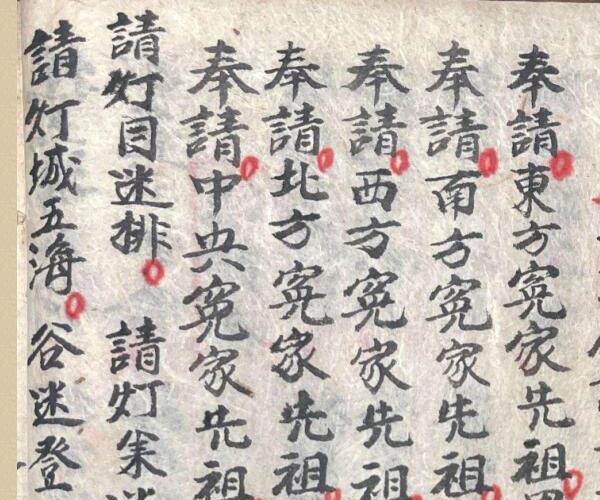 奉請東方寃家先祖
奉請南方寃家先祖
奉請西方寃家先祖
奉請北方寃家先祖
奉請中央寃家先祖
請灯目迷排 請灯
請灯城五海 谷迷登